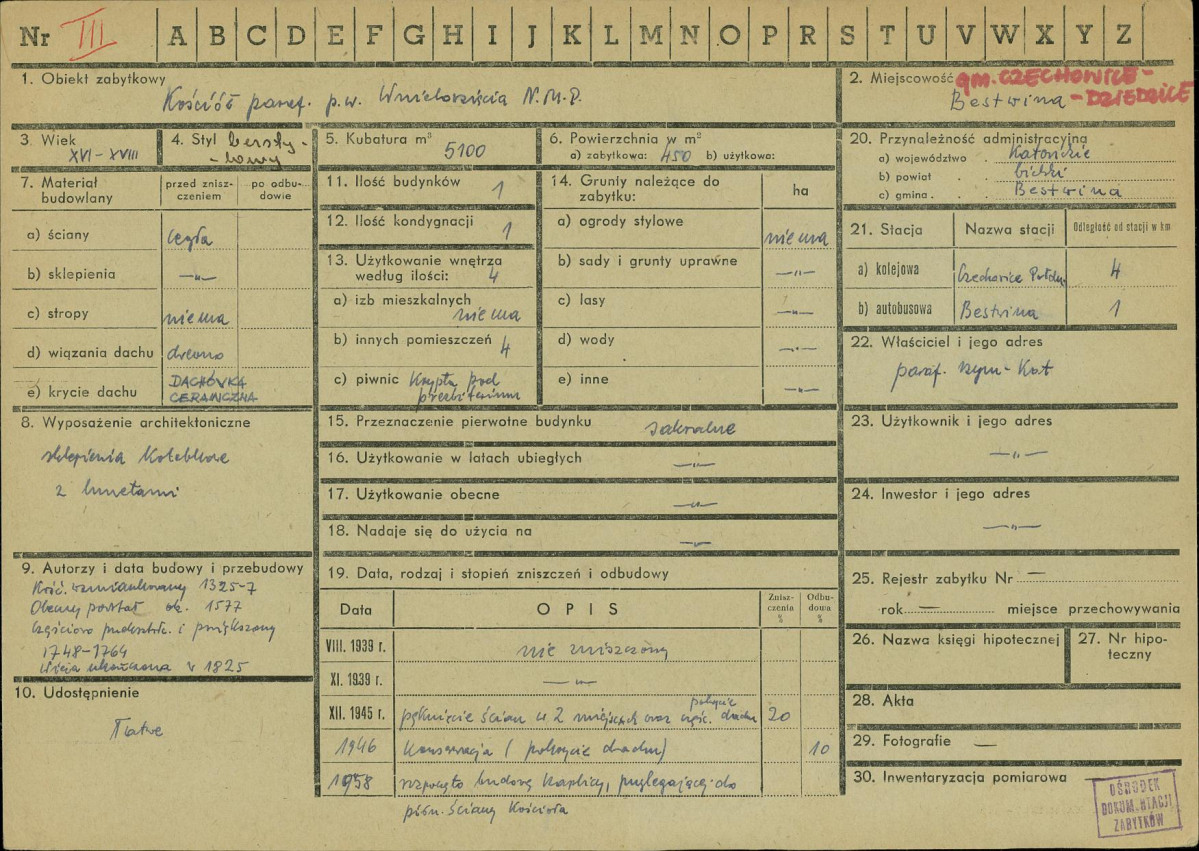 Nr III A B C D E F G H I J K L M N O P R S T U V W X Y Z
1. Obiekt zabytkowy
Kościół paraf. p.w. Wniebowzięcia N.M.P.
2. Miejscowość gm. CZECHOWICE-
Bestwina -DZIEDZICE
3. Wiek
XVI-XVIII
4. Styl
5. Kubatura m³
5100
6. Powierzchnia w m²
a) zabytkowa: 450 b) użytkowa:
7. Materiał budowlany
przed znisz-
czeniem
po odbu-
dowie
a) ściany cegła
b) sklepienia -„-
c) stropy nie ma
d) wiązania dachu drewno
e) krycie dachu DACHÓWKA
CERAMICZNA
8. Wyposażenie architektoniczne
sklepienia kolebkowe
z lunetami
9. Autorzy i data budowy i przebudowy
Kość. wzmiankowany 1325-7
Obecny postać ok. 1577
Częściowo i powiększony
1748-1764
Wieża ukończona w 1825
10. Udostępnienie
Łatwe
11. Ilość budynków 1
12. Ilość kondygnacji 1
13. Użytkowanie wnętrza
według ilości: 4
a) izb mieszkalnych
nie ma
b) innych pomieszczeń 4
c) piwnic Krypta pod
prezbiterium
14. Grunty należące do
zabytku:
ha
a) ogrody stylowe nie ma
b) sady i grunty uprawne -„-
c) lasy -„-
d) wody -„-
e) inne -„-
15. Przeznaczenie pierwotne budynku sakralne
16. Użytkowanie w latach ubiegłych -„-
17. Użytkowanie obecne -„-
18. Nadaje się do użycia na -„-
19. Data, rodzaj i stopień zniszczeń i odbudowy
Data OPIS Znisz-
czenia
%
Odbu-
dowa
%
VIII. 1939 r. nie zniszczony
XI. 1939 r. -„-
pokrycie
XII. 1945 r. pęknięcie ścian w 2 miejscach oraz częśc. dachu 20
1946 Konserwacja (pokrycie dachu) 10
1958 rozpoczęto budowę kaplicy, przylegającej do
półn. ściany kościoła
20. Przynależność administracyjna
a) województwo Katowickie
b) powiat bielski
c) gmina Bestwina
21. Stacja
Nazwa stacji
Odległość od stacji w km
a) kolejowa Czechowice Połdn. 4
b) autobusowa Bestwina 1
22. Właściciel i jego adres
paraf. rzym-kat
23. Użytkownik i jego adres
-„-
24. Inwestor i jego adres
-„-
25. Rejestr zabytku Nr —
rok — miejsce przechowywania
26. Nazwa księgi hipotecznej
27. Nr hipo-
teczny
28. Akta
29. Fotografie —
30. Inwentaryzacja pomiarowa
OŚRODEK
DOKUM.NTACJI
ZABYTKÓW